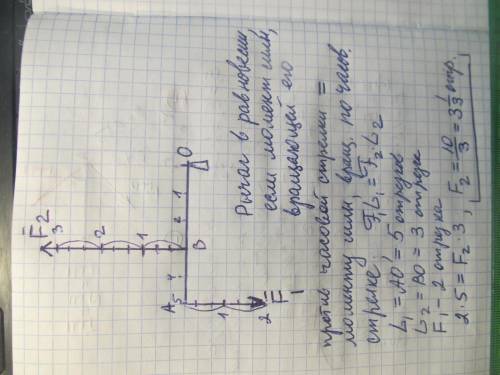 F2
3
2
1
O
1
2
B
4
A5
1
2
F1
Рычаг в равновесии,
если момент силы,
вращающей его
против часовой стрелки =
моменту силы, вращ. по часов.
стрелке. F1L1 = F2·L2
L1 = AO = 5 отрезков
L2 = BO = 3 отрезка
F1 - 2 отрезка
2·5 = F2·3, F2 = 10/3 = 3 1/3 отр.